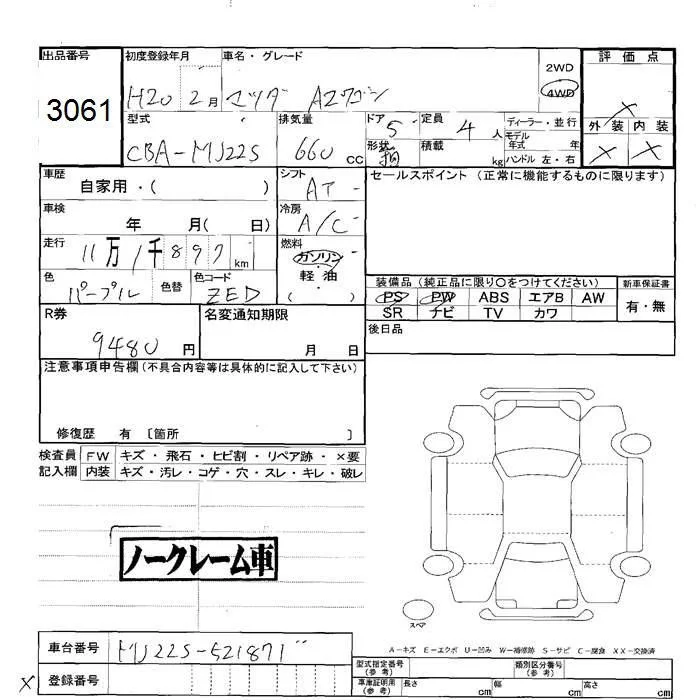 出品番号 3061
初度登録年月 H20 2月
車名・グレード マツダ AZワゴン
2WD
4WD
評価点 ×
外装 × 内装 ×
型式 CBA-MJ22S
排気量 660 cc
ドア 5
形状
定員 4 人
積載 kg
ディーラー・並行
モデル年式 年
ハンドル 左・右
車歴 自家用・( )
シフト AT
セールスポイント (正常に機能するものに限ります)
車検 年 月( 日)
冷房 A/C
走行 11万1千897km
燃料 ガソリン・軽油 ( )
色 パープル 色替
色コード ZED
装備品 (純正品に限り○をつけてください)
PS PW ABS エアB AW
SR ナビ TV カワ
新車保証書
有・無
R券 9480 円
名変通知期限 月 日
後日品
注意事項申告欄(不具合内容等は具体的に記入して下さい)
修復歴 有 〔箇所 〕
検査員 FW キズ・飛石・ヒビ割・リペア跡・×要
記入欄 内装 キズ・汚レ・コゲ・穴・スレ・キレ・破レ
ノークレーム車
スペア
A-キズ E-エクボ U-凹み W-補修跡 S-サビ C-腐食 XX-交換済
車台番号 MJ22S-521871
× 登録番号
型式指定番号(参考) 類別区分番号(参考)
車庫証明用(参考) 長さ cm 幅 cm 高さ cm